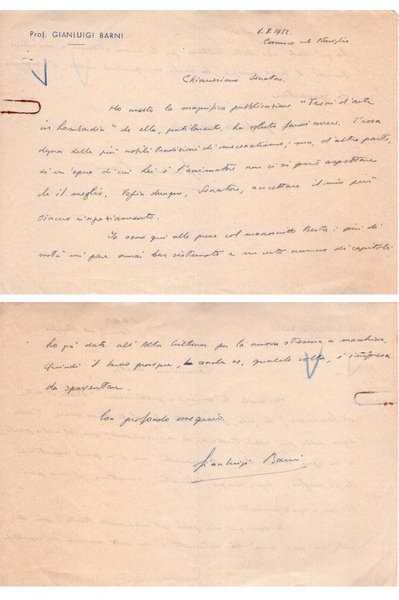 Prof. GIANLUIGI BARNI
6.8.1952.
Cernusco sul Naviglio
Chiarissimo Senatore.
Ho avuto la magnifica pubblicazione "Tesori d'arte
in Lombardia" che ella, gentilmente, ha voluto farmi avere. È cosa
degna delle più nobili tradizioni di mecenatismo; ma, d'altra parte,
di un'opera di cui Lei è l'animatore non ci si può aspettare
che il meglio. Voglia dunque, Senatore, accettare il mio più
sincero ringraziamento.
Io sono qui alle prese col manoscritto Besta: i più di
metà mi pare ormai ben sistemato e un certo numero di capitoli
ho già dato alla per la nuova stesura a macchina.
Quindi il lavoro prosegue, anche se, qualche volta, c'è
da spaventare.
Con profondo ossequio
Gianluigi Barni